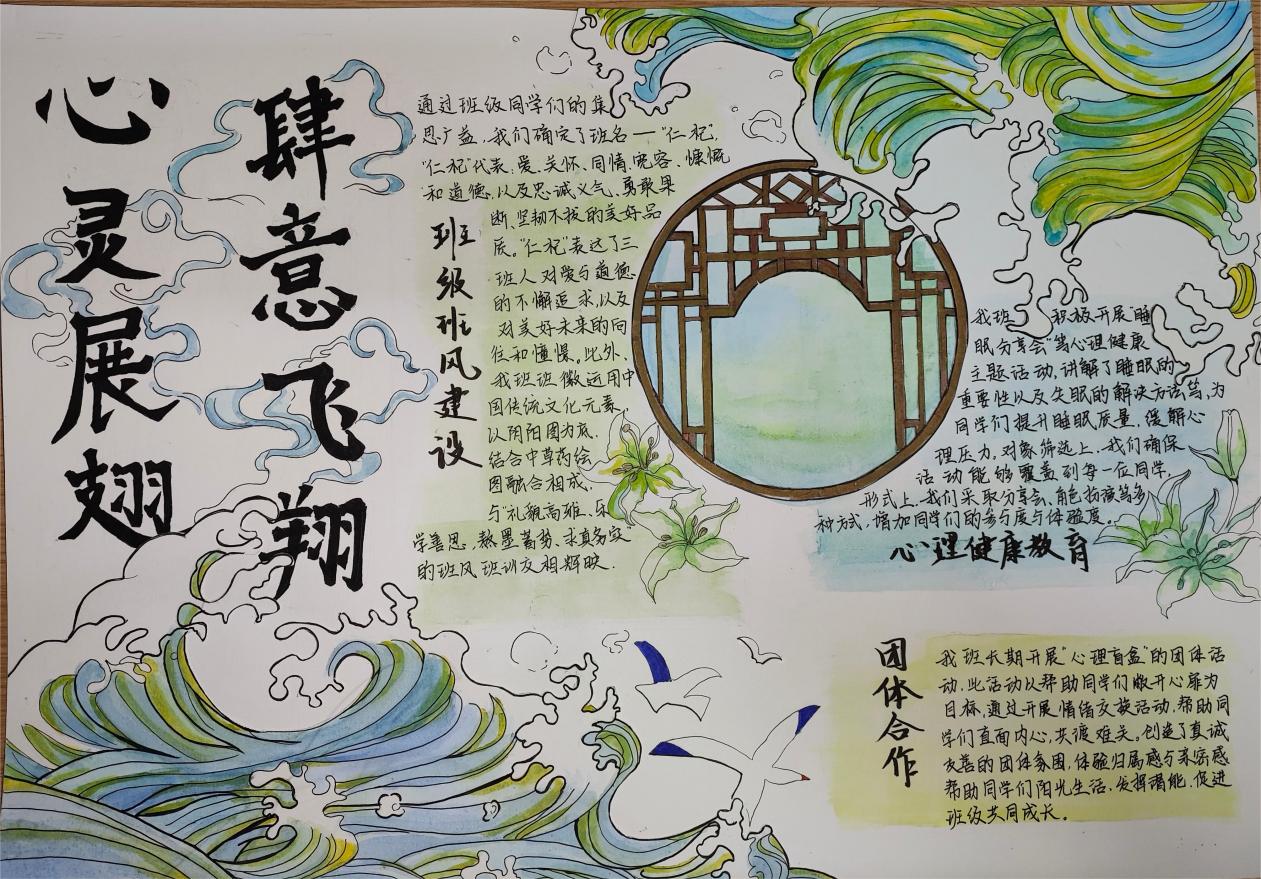 心灵展翅
肆意飞翔
班级班风建设
通过班级同学们的集
思广益,我们确定了班名——"仁祀",
"仁祀"代表:爱、关怀、同情、宽容、慷慨
和道德,以及忠诚义气、勇敢果
断、坚韧不拔的美好品
质。"仁祀"表达了三
班人对爱与道德
的不懈追求,以及
对美好未来的向
往和憧憬。此外、
我班班徽运用中
国传统文化元素,
以阴阳图为底,
结合中草药绘
图融合相成,
与"礼貌高雅、乐
学善思,热墨蓄势、求真务实
的班风班训交相辉映.
我班 积极开展"睡
眠分享会"等心理健康
主题活动,讲解了睡眠的
重要性以及失眠的解决方法等,为
同学们提升睡眠质量,缓解心
理压力,对象筛选上,我们确保
活动能够覆盖到每一位同学,
形式上,我们采取分享会、角色扮演等多
种方式,增加同学们的参与度与体验度。
心理健康教育
团体合作
我班长期开展"心理盲盒"的团体活
动,此活动以帮助同学们敞开心扉为
目标,通过开展情绪交换活动,帮助同
学们直面内心,共渡难关,创造了真诚
友善的团体氛围,体验归属感与亲密感
帮助同学们阳光生活,发挥潜能,促进
班级共同成长。